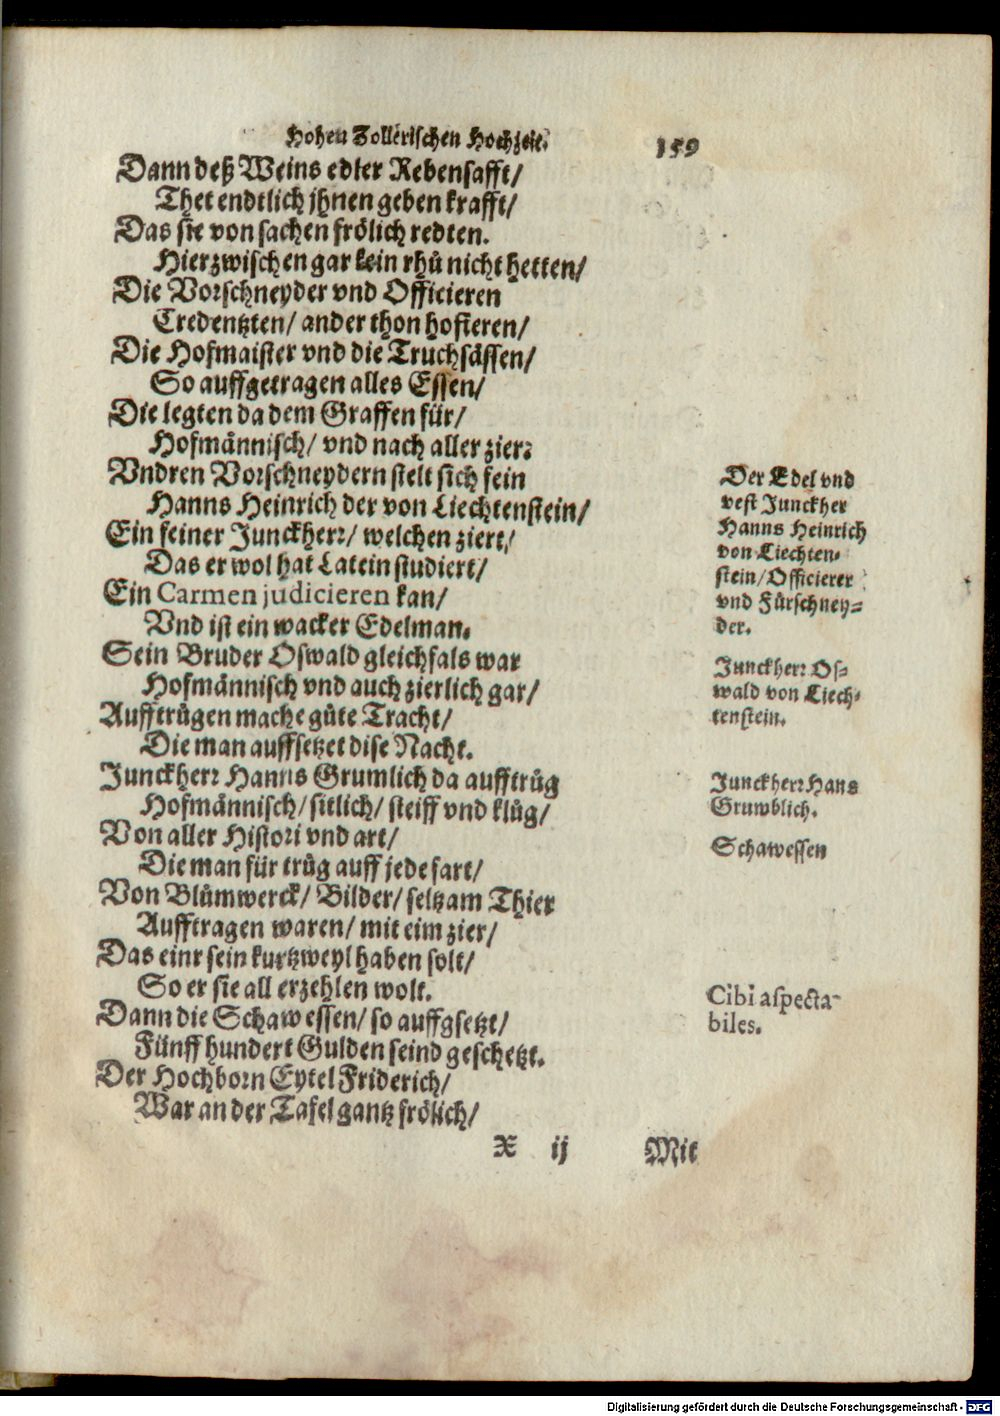 Hohen Zollerischen Hochzeit. 159
Dann deß Weins edler Rebensafft/
Thet endtlich jhnen geben krafft/
Das sie von sachen frölich redten.
Hierzwischen gar kein rhů nicht hetten/
Die Vorschneyder vnd Officieren
Credentzten/ ander thon hofieren/
Die Hofmaister vnd die Truchsässen/
So auffgetragen alles Essen/
Die legten da dem Graffen für/
Hofmännisch/ vnd nach aller zier:
Vndren Vorschneydern stelt sich fein
Hanns Heinrich der von Liechtenstein/
Ein feiner Junckherr/ welchen ziert/
Das er wol hat Latein studiert/
Ein Carmen judicieren kan/
Vnd ist ein wacker Edelman.
Sein Bruder Oswald gleichfals war
Hofmännisch vnd auch zierlich gar/
Aufftrůgen mache gůte Tracht/
Die man auffsetzet dise Nacht.
Junckherr Hanns Grumlich da aufftrůg
Hofmännisch/ sitlich/ steiff vnd klůg/
Von aller Histori vnd art/
Die man für trůg auff jede fart/
Von Blůmwerck/ Bilder/ seltzam Thier
Aufftragen waren/ mit eim zier/
Das einr sein kurtzweyl haben solt/
So er sie all erzehlen wolt.
Dann die Schawessen/ so auffgsetzt/
Fünff hundert Gulden seind geschetzt.
Der Hochborn Eytel Friderich/
War an der Tafel gantz frölich/
X ij Mit
Der Edel vnd
vest Junckher
Hanns Heinrich
von Liechten-
stein/ Officierer
vnd Fürschney-
der.
Junckherr Os-
wald von Liech-
tenstein.
Junckherr Hans
Grumblich.
Schawessen
Cibi aspecta-
biles.
Digitalisierung gefördert durch die Deutsche Forschungsgemeinschaft - DFG